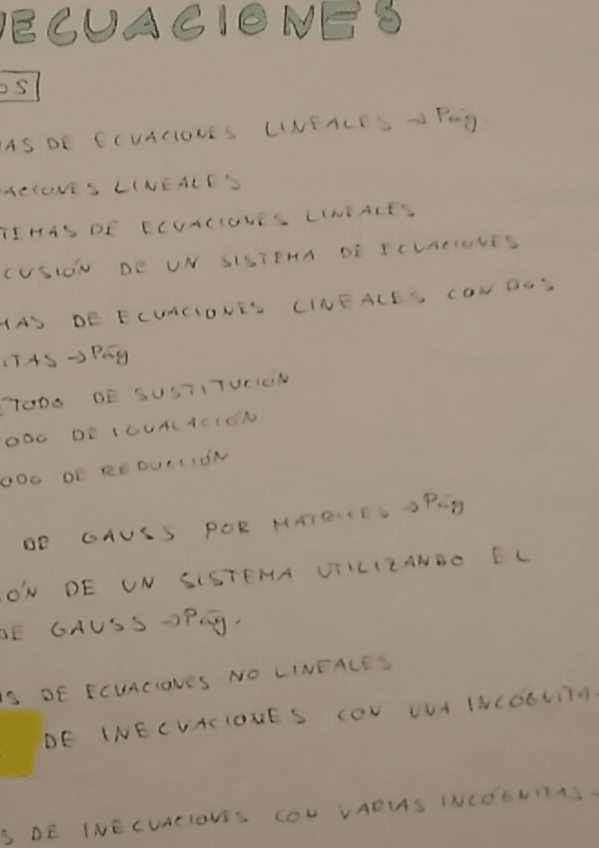 ECUACIONES
OS
AS DE ECUACIONES LINEALES → Pág.
ACIONES LINEALES
TEMAS DE ECUACIONES LINEALES
CUSIÓN DE UN SISTEMA DE ECUACIONES
MAS DE ECUACIONES LINEALES CON DOS
ITAS → Pág
ÉTODO DE SUSTITUCIÓN
ODO DE IGUALACIÓN
ODO DE REDUCCIÓN
DE GAUSS POR MATRICES → Pág
IÓN DE UN SISTEMA UTILIZANDO EL
DE GAUSS → Pág.
AS DE ECUACIONES NO LINEALES
DE INECUACIONES CON UNA INCÓGNITA.
S DE INECUACIONES CON VARIAS INCÓGNITAS -